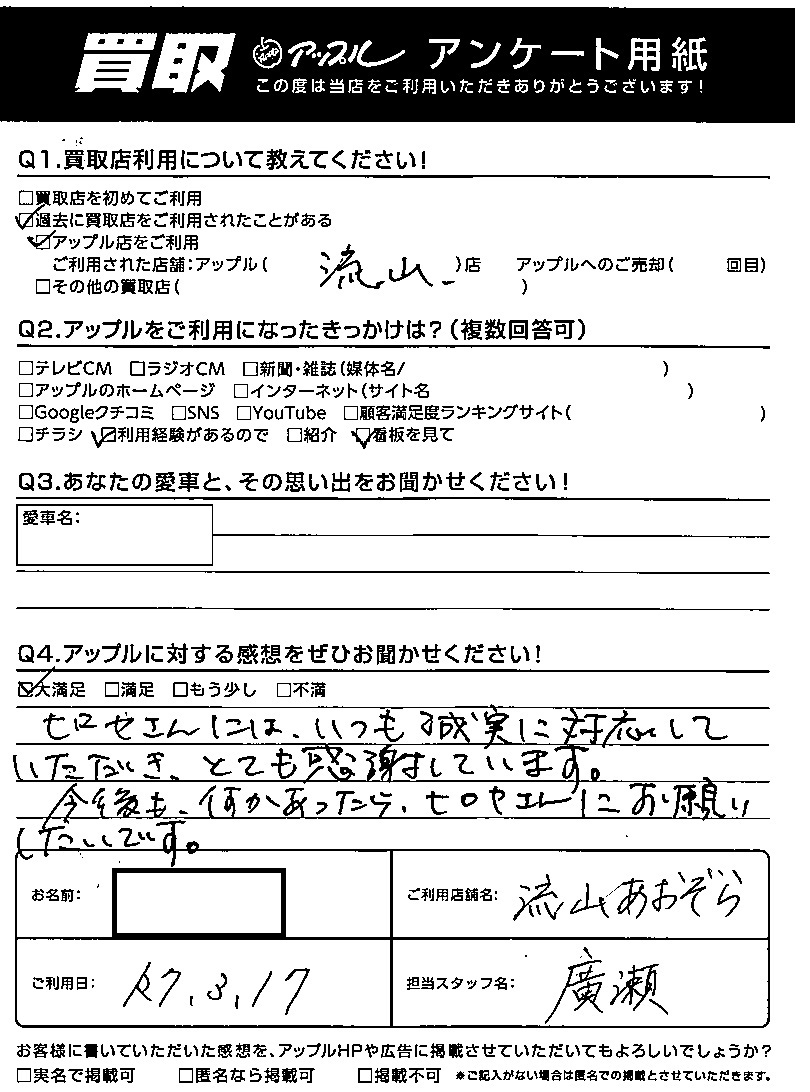 買取 アップル アンケート用紙
この度は当店をご利用いただきありがとうございます!
Q1.買取店利用について教えてください!
□買取店を初めてご利用
☑過去に買取店をご利用されたことがある
☑アップル店をご利用
ご利用された店舗:アップル( 流山 )店 アップルへのご売却( 回目)
□その他の買取店( )
Q2.アップルをご利用になったきっかけは?(複数回答可)
□テレビCM □ラジオCM □新聞・雑誌(媒体名/ )
□アップルのホームページ □インターネット(サイト名 )
□Googleクチコミ □SNS □YouTube □顧客満足度ランキングサイト( )
□チラシ ☑利用経験があるので □紹介 ☑看板を見て
Q3.あなたの愛車と、その思い出をお聞かせください!
愛車名:
Q4.アップルに対する感想をぜひお聞かせください!
☑大満足 □満足 □もう少し □不満
ヒロセさんには、いつも誠実に対応して
いただき、とても感謝しています。
今後も、何かあったら、ヒロセさんにお願い
したいです。
お名前: ご利用店舗名: 流山あおぞら
ご利用日: R7.3.17 担当スタッフ名: 廣瀬
お客様に書いていただいた感想を、アップルHPや広告に掲載させていただいてもよろしいでしょうか?
□実名で掲載可 □匿名なら掲載可 □掲載不可 ※ご記入がない場合は匿名での掲載とさせていただきます。